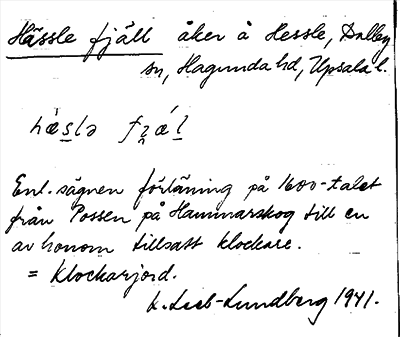 Hässle fjäll åker å Hessle, Dalby
sn, Hagunda hd, Upsala l.
hæ̀s̲lə fȷ̲ǽl̲
Enl. sägnen förläning på 1600-talet
från Possen på Hammarskog till en
av honom tillsatt klockare.
= klockarjord.
K. Leeb-Lundberg 1941.